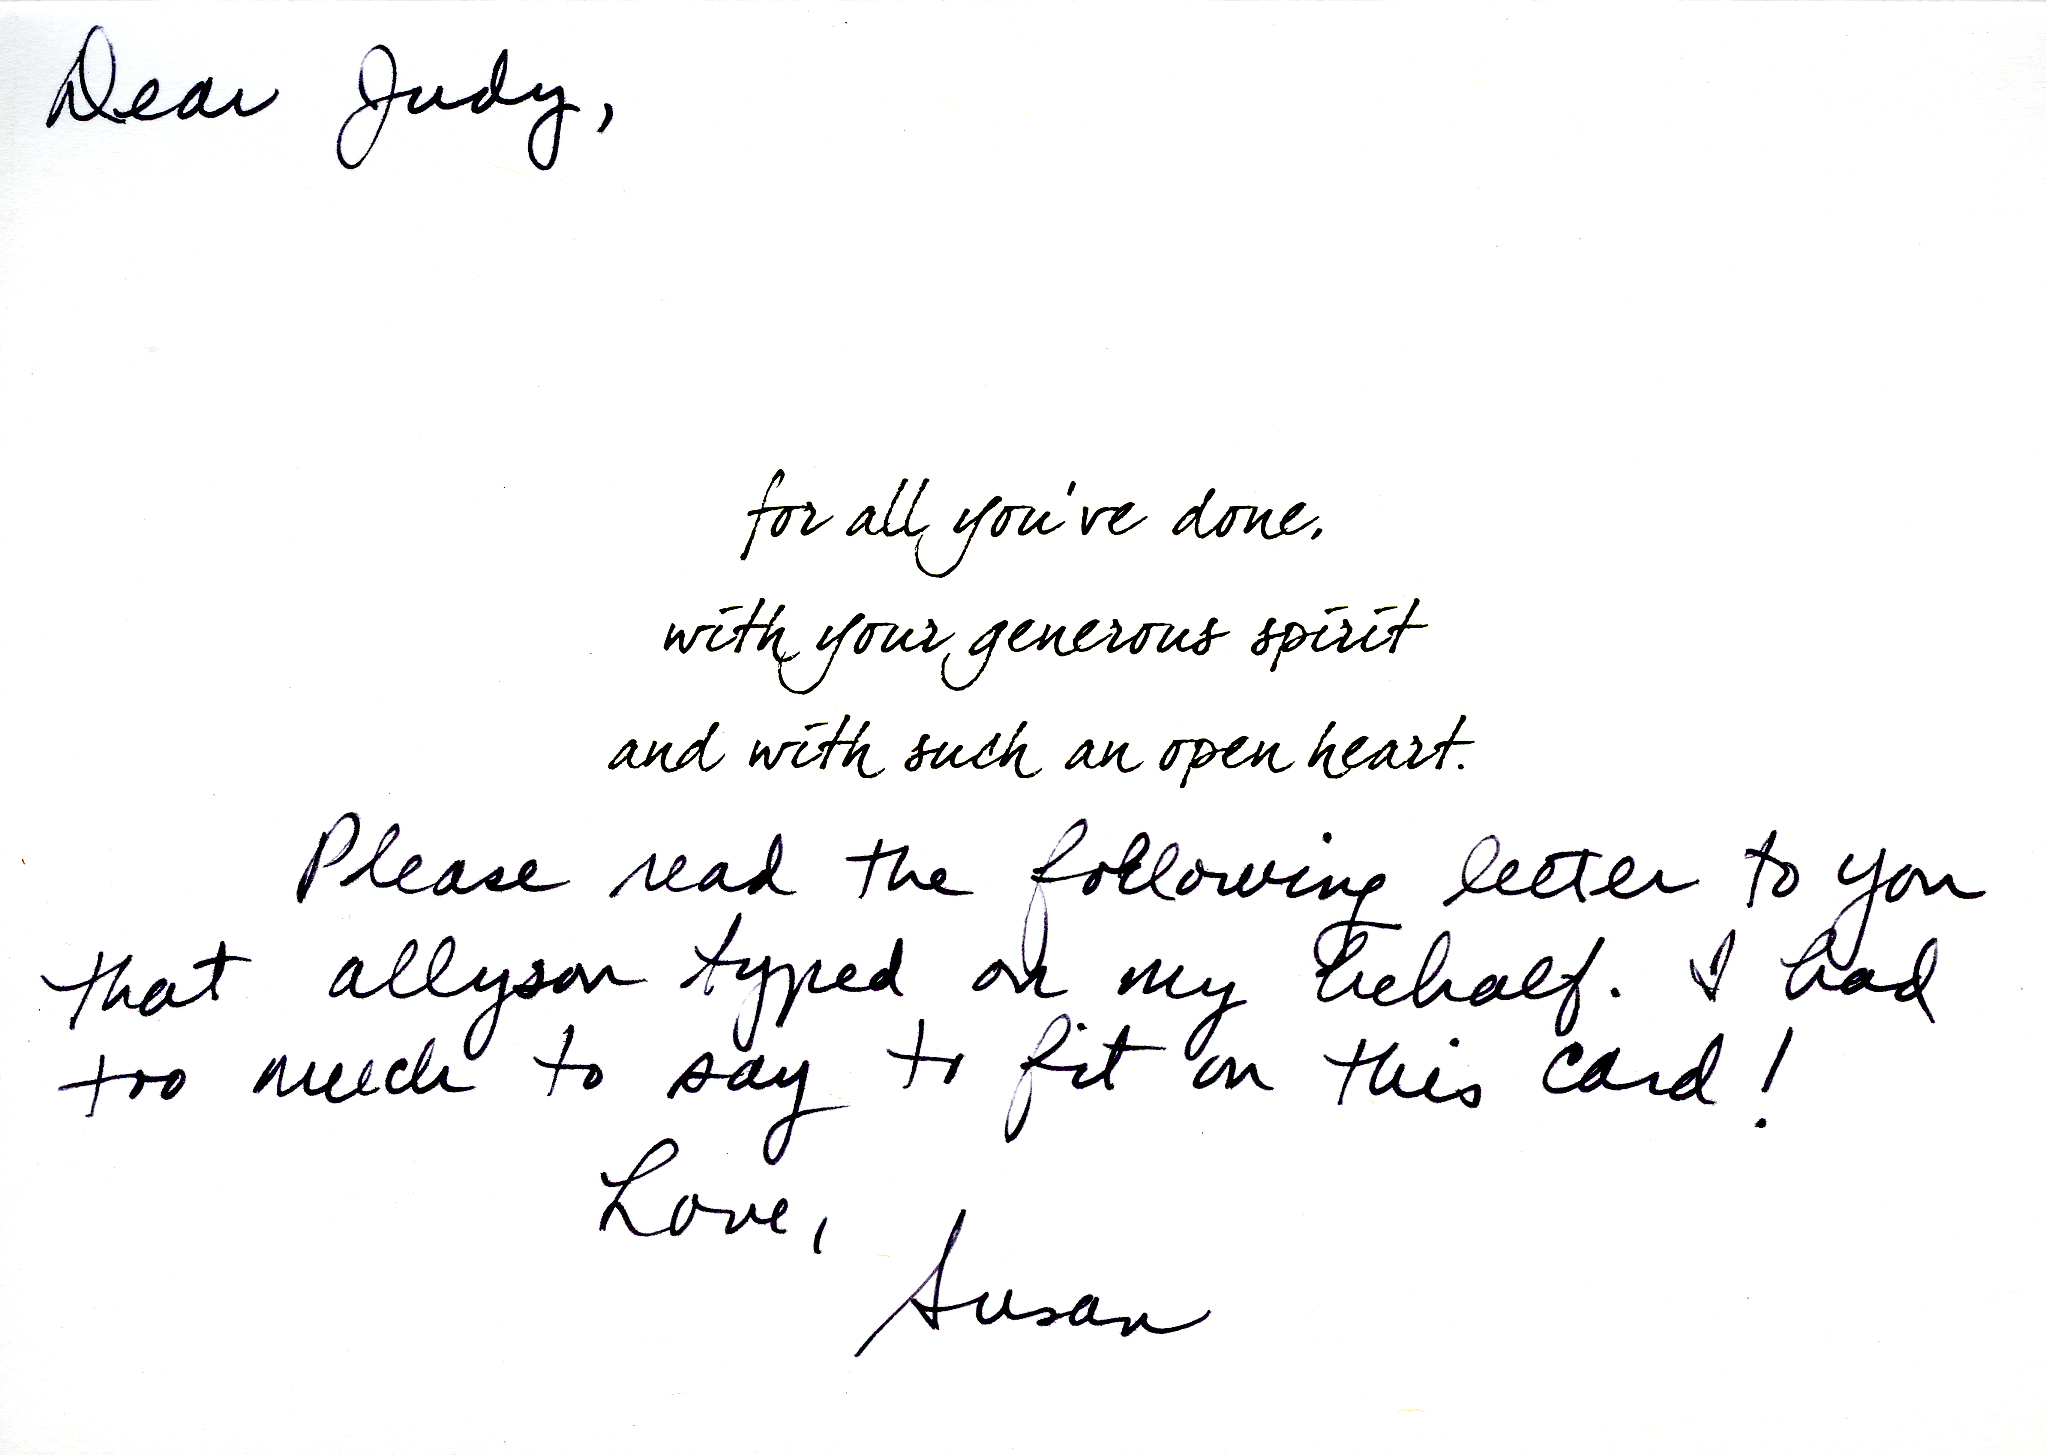 Dear Judy,
for all you've done,
with your generous spirit
and with such an open heart.
Please read the following letter to you
that allyson typed on my behalf. I had
too much to say to fit on this card!
Love,
Susan